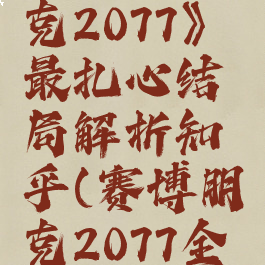 克2077》
最扎心结
局解析知
乎(赛博朋
克2077全